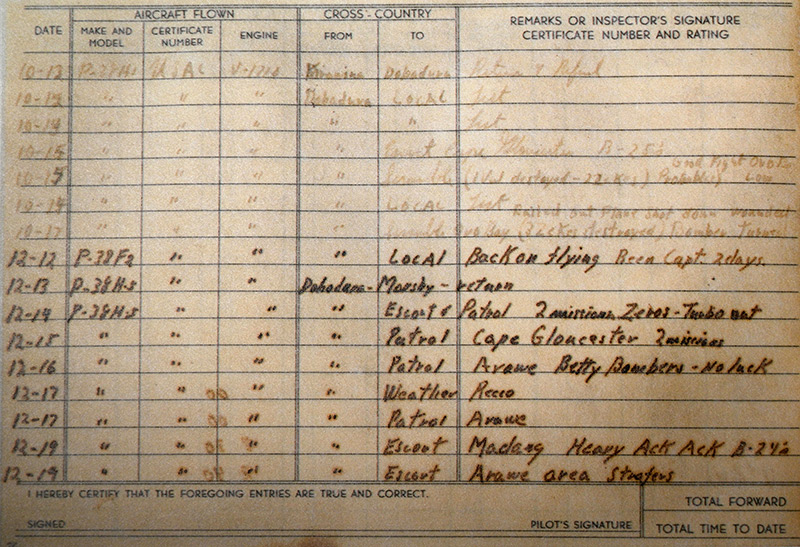 AIRCRAFT FLOWN CROSS-COUNTRY REMARKS OR INSPECTOR'S SIGNATURE
DATE MAKE AND MODEL CERTIFICATE NUMBER ENGINE FROM TO CERTIFICATE NUMBER AND RATING
10-13 P-38H-1 USAC V-1710 Kiriwina Dobadura Return & Refuel
10-13 " " " Dobadura Local Test
10-14 " " " " " Test
10-15 " " " " B-25s
10-15 " " " " Scramble (1 Val destroyed - 2 Zekes) Probables) Low
10-17 " " " " LOCAL Test
10-17 " " " " Scramble Oro Bay (3 Zekes destroyed) Bailed out Plane shot down wounded
12-12 P-38F2 " " " Local Back on flying Been Capt. 2 days
12-13 P-38H-5 " " Dobadura - Moresby - return
12-14 P-38H-5 " " " Escort & Patrol 2 missions Zeros - Turbo out
12-15 " " " " Patrol Cape Gloucester 2 missions
12-16 " " " " Patrol Arawe Betty Bombers - No luck
12-17 " " " " Weather Recco
12-17 " " " " Patrol Arawe
12-19 " " " " Escort Madang Heavy Ack Ack B-24s
12-19 " " " " Escort Arawe area Strafers
I HEREBY CERTIFY THAT THE FOREGOING ENTRIES ARE TRUE AND CORRECT. TOTAL FORWARD
SIGNED PILOT'S SIGNATURE TOTAL TIME TO DATE